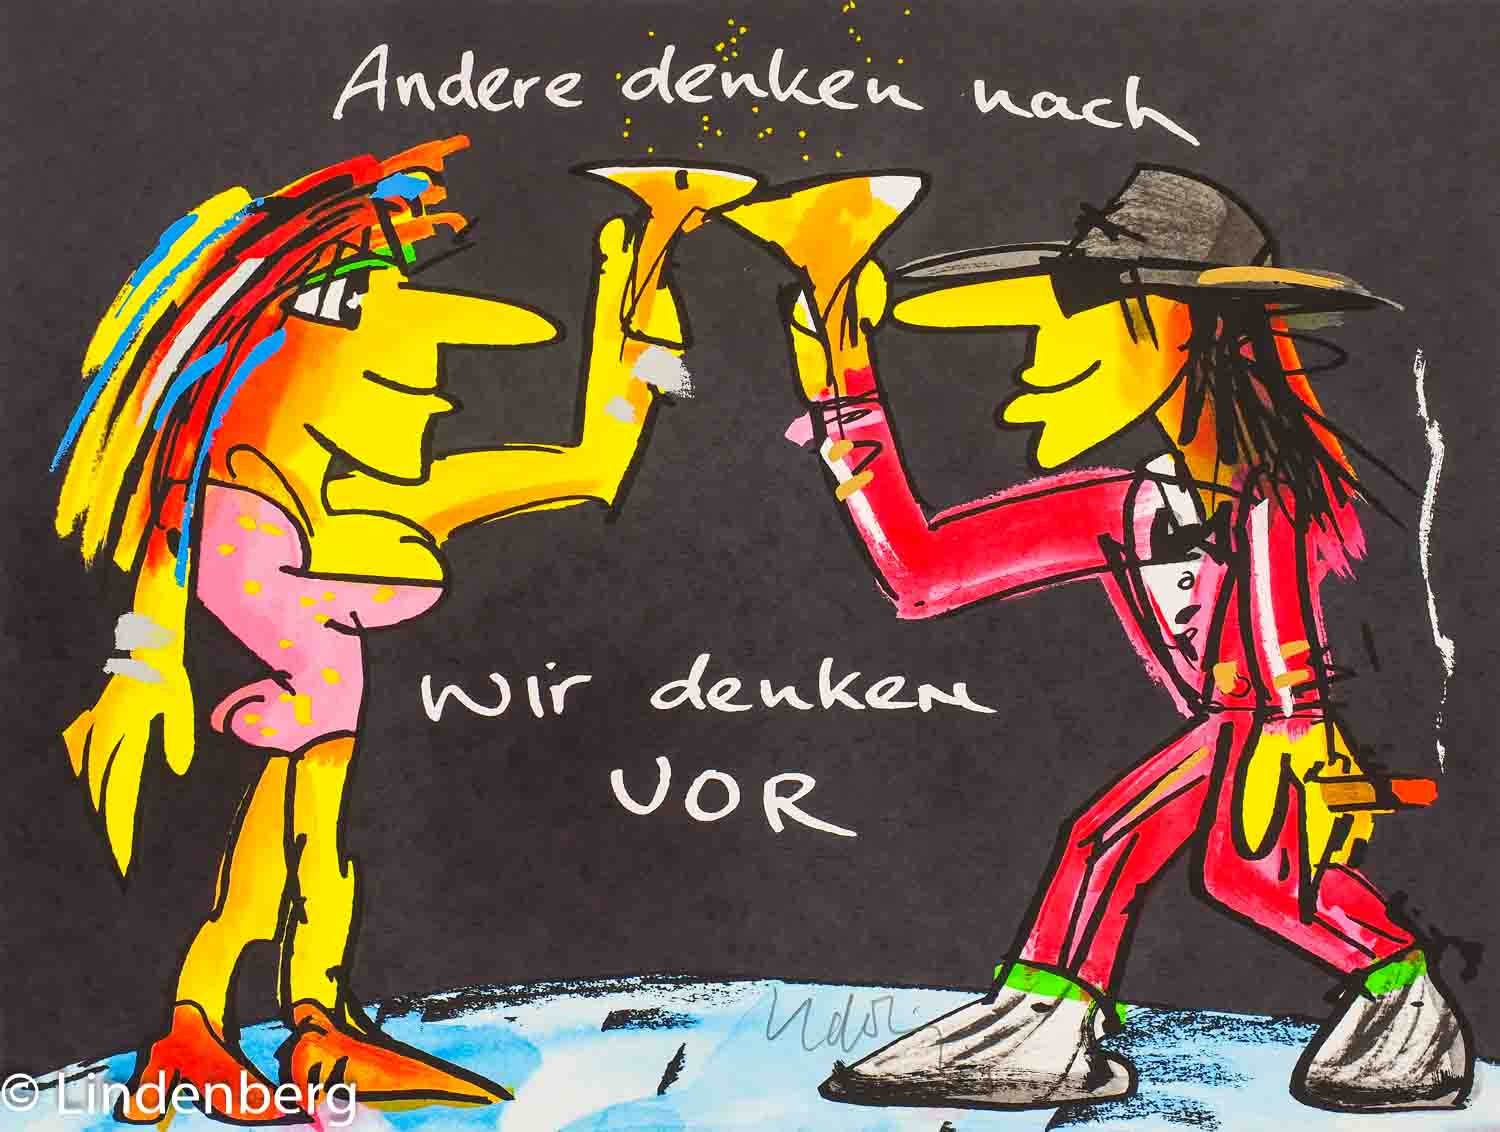 Andere denken nach
wir denken
VOR
Udo L
© Lindenberg